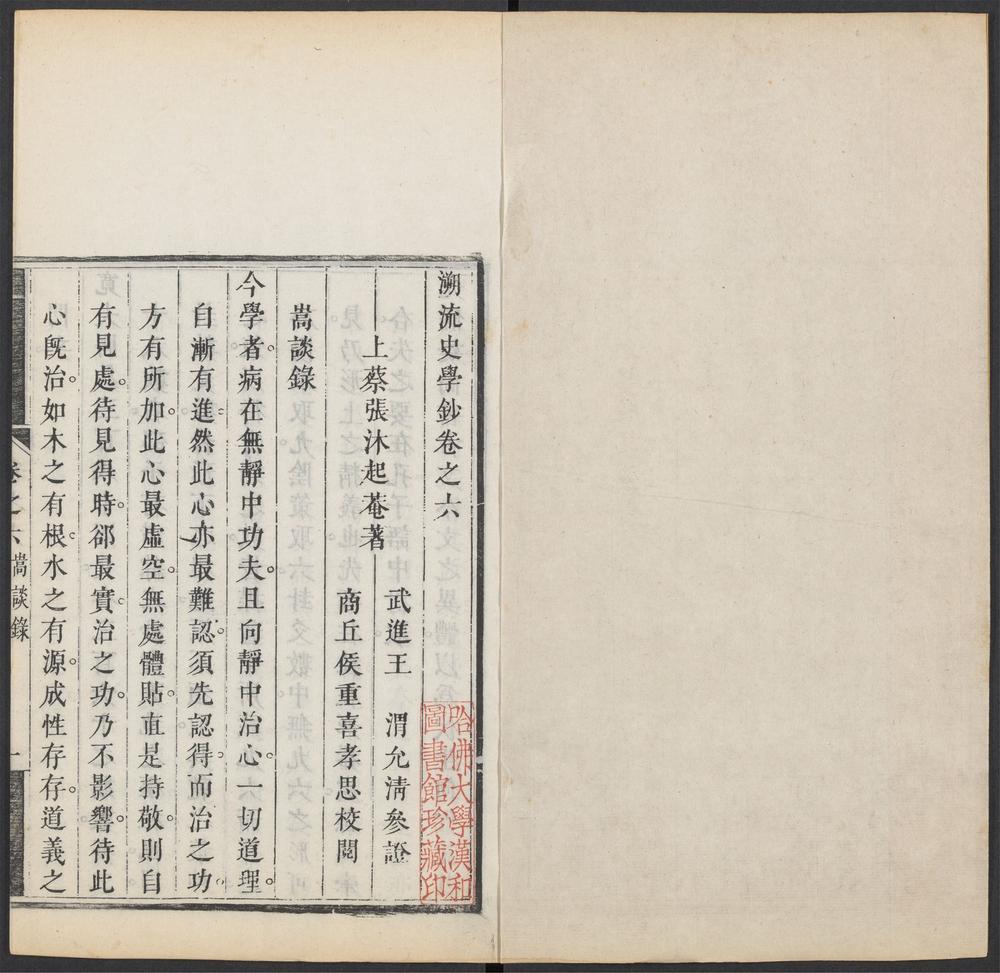 溯流史學鈔卷之六
武進王　渭允淸參證
上蔡張沐起菴著
商丘侯重喜孝思校閱
嵩談錄
今學者。病在無靜中功夫。且向靜中治心。一切道理。
自漸有進。然此心亦最難認。須先認得而治之功。
方有所加。此心最虛空。無處體貼。直是持敬。則自
有見處。待見得時。郤最實。治之功。乃不影響。待此
心旣治。如木之有根。水之有源。成性存存。道義之
卷之六 嵩談錄
一
哈佛大學漢和
圖書館珍藏印